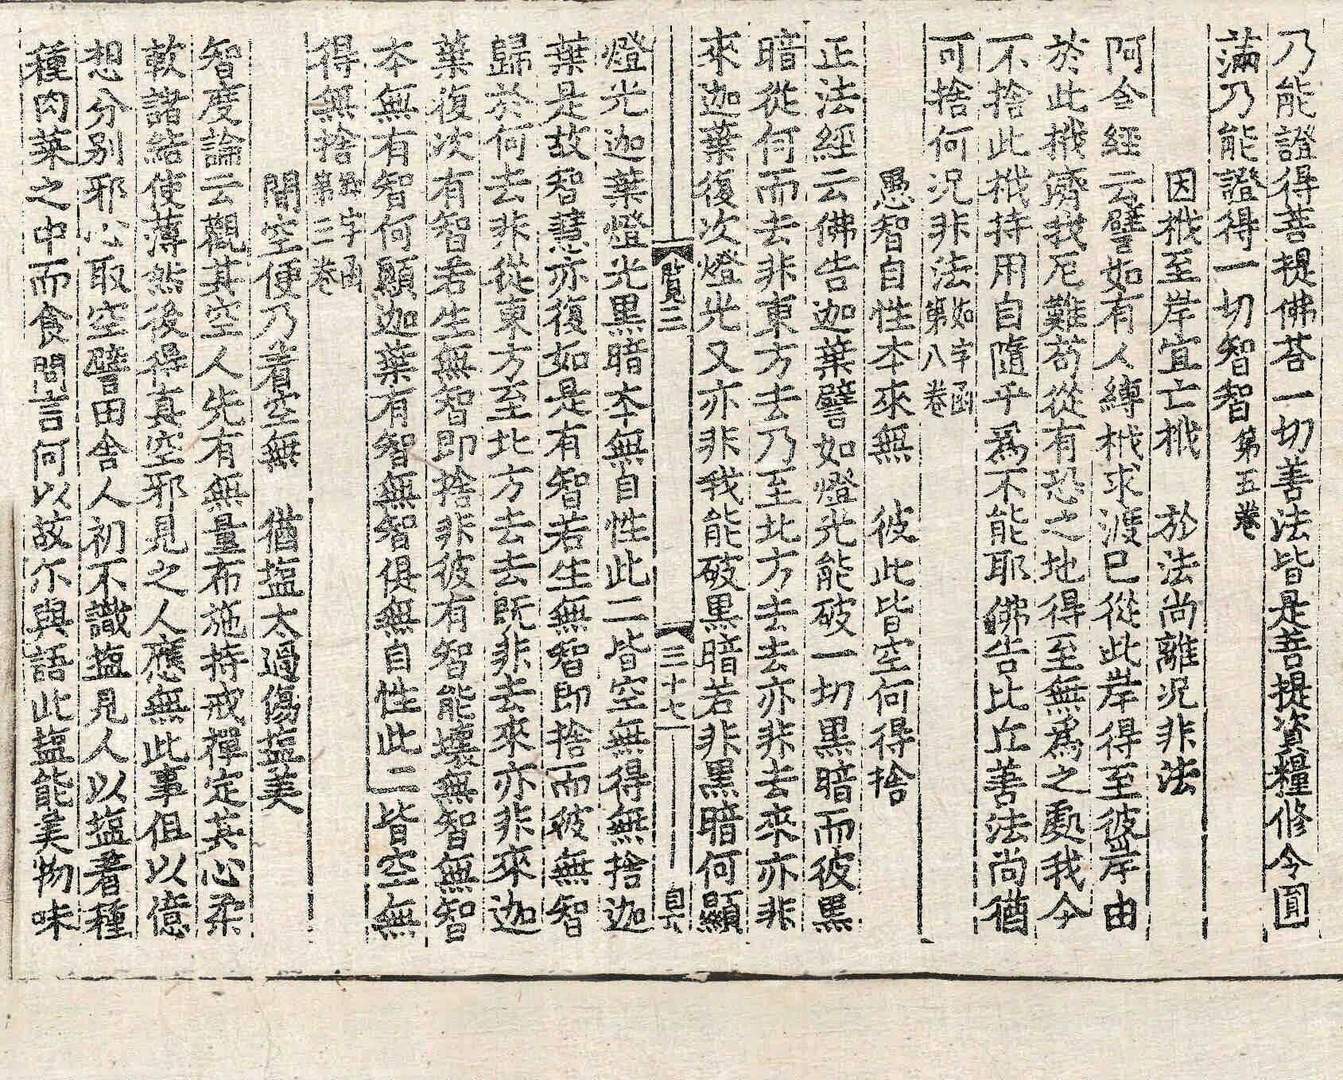 乃能證得菩提佛荅一切善法皆是菩提資糧修令圓
滿乃能證得一切智智第五卷
因栰至岸宜亡栰　於法尚離况非法
阿含經云譬如有人縛栰求渡已從此岸得至彼岸由
於此栰濟我厄難苟從有恐之地得至無爲之處我今
不捨此栰持用自隨乎爲不能耶佛告比丘善法尚猶
可捨何况非法如字函第八卷
愚智自性本來無　彼此皆空何得捨
正法經云佛告迦葉譬如燈光能破一切黑暗而彼黑
暗從何而去非東方去乃至北方去去亦非去來亦非
來迦葉復次燈光又亦非我能破黑暗若非黑暗何顯
覧三　三十七　
燈光迦葉燈光黑暗本無自性此二皆空無得無捨迦
葉是故智慧亦復如是有智若生無智即捨而彼無智
歸於何去非從東方至北方去去既非去來亦非來迦
葉復次有智若生無智即捨非彼有智能壞無智無智
本無有智何顯迦葉有智無智俱無自性此二皆空無
得無捨字函第三卷
聞空便乃着空無　猶塩太過傷塩美
智度論云觀其空人先有無量布施持戒禪定其心柔
軟諸結使薄然後得真空邪見之人應無此事但以億
想分别邪心取空譬田舍人初不識塩見人以塩着種
種肉菜之中而食問言何以故尒與語此塩能美物味